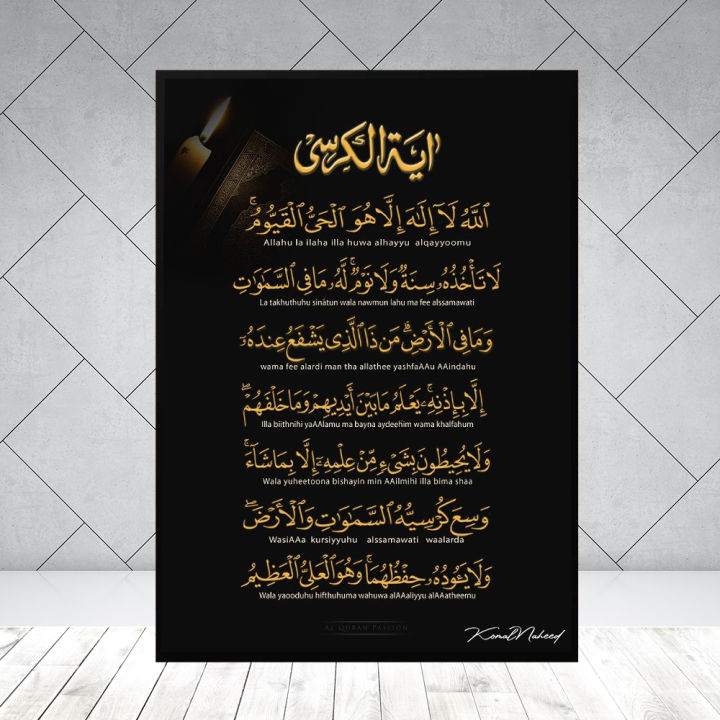 اٰيَةُ الْكُرْسِي
ٱللَّهُ لَآ إِلَٰهَ إِلَّا هُوَ ٱلْحَىُّ ٱلْقَيُّومُ ۚ
Allahu la ilaha illa huwa alhayyu alqayyoomu
لَا تَأْخُذُهُۥ سِنَةٌ وَلَا نَوْمٌ ۚ لَّهُۥ مَا فِى ٱلسَّمَٰوَٰتِ
La takhuthuhu sinatun wala nawmun lahu ma fee alssamawati
وَمَا فِى ٱلْأَرْضِ ۗ مَن ذَا ٱلَّذِى يَشْفَعُ عِندَهُۥٓ
wama fee alardi man tha allathee yashfaAAu AAindahu
إِلَّا بِإِذْنِهِۦ ۚ يَعْلَمُ مَا بَيْنَ أَيْدِيهِمْ وَمَا خَلْفَهُمْ ۖ
Illa biithnihi yaAAlamu ma bayna aydeehim wama khalfahum
وَلَا يُحِيطُونَ بِشَىْءٍ مِّنْ عِلْمِهِۦٓ إِلَّا بِمَا شَآءَ ۚ
Wala yuheetoona bishayin min AAilmihi illa bima shaa
وَسِعَ كُرْسِيُّهُ ٱلسَّمَٰوَٰتِ وَٱلْأَرْضَ ۖ
WasiAAa kursiyyuhu alssamawati waalarda
وَلَا يَـُٔودُهُۥ حِفْظُهُمَا ۚ وَهُوَ ٱلْعَلِىُّ ٱلْعَظِيمُ
Wala yaooduhu hifthuhuma wahuwa alAAaliyyu alAAatheemu
Al Quran Passion
KomalNaheed